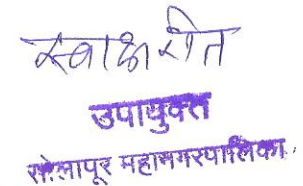 स्वाक्षरीत
उपायुक्त
सोलापूर महानगरपालिका.